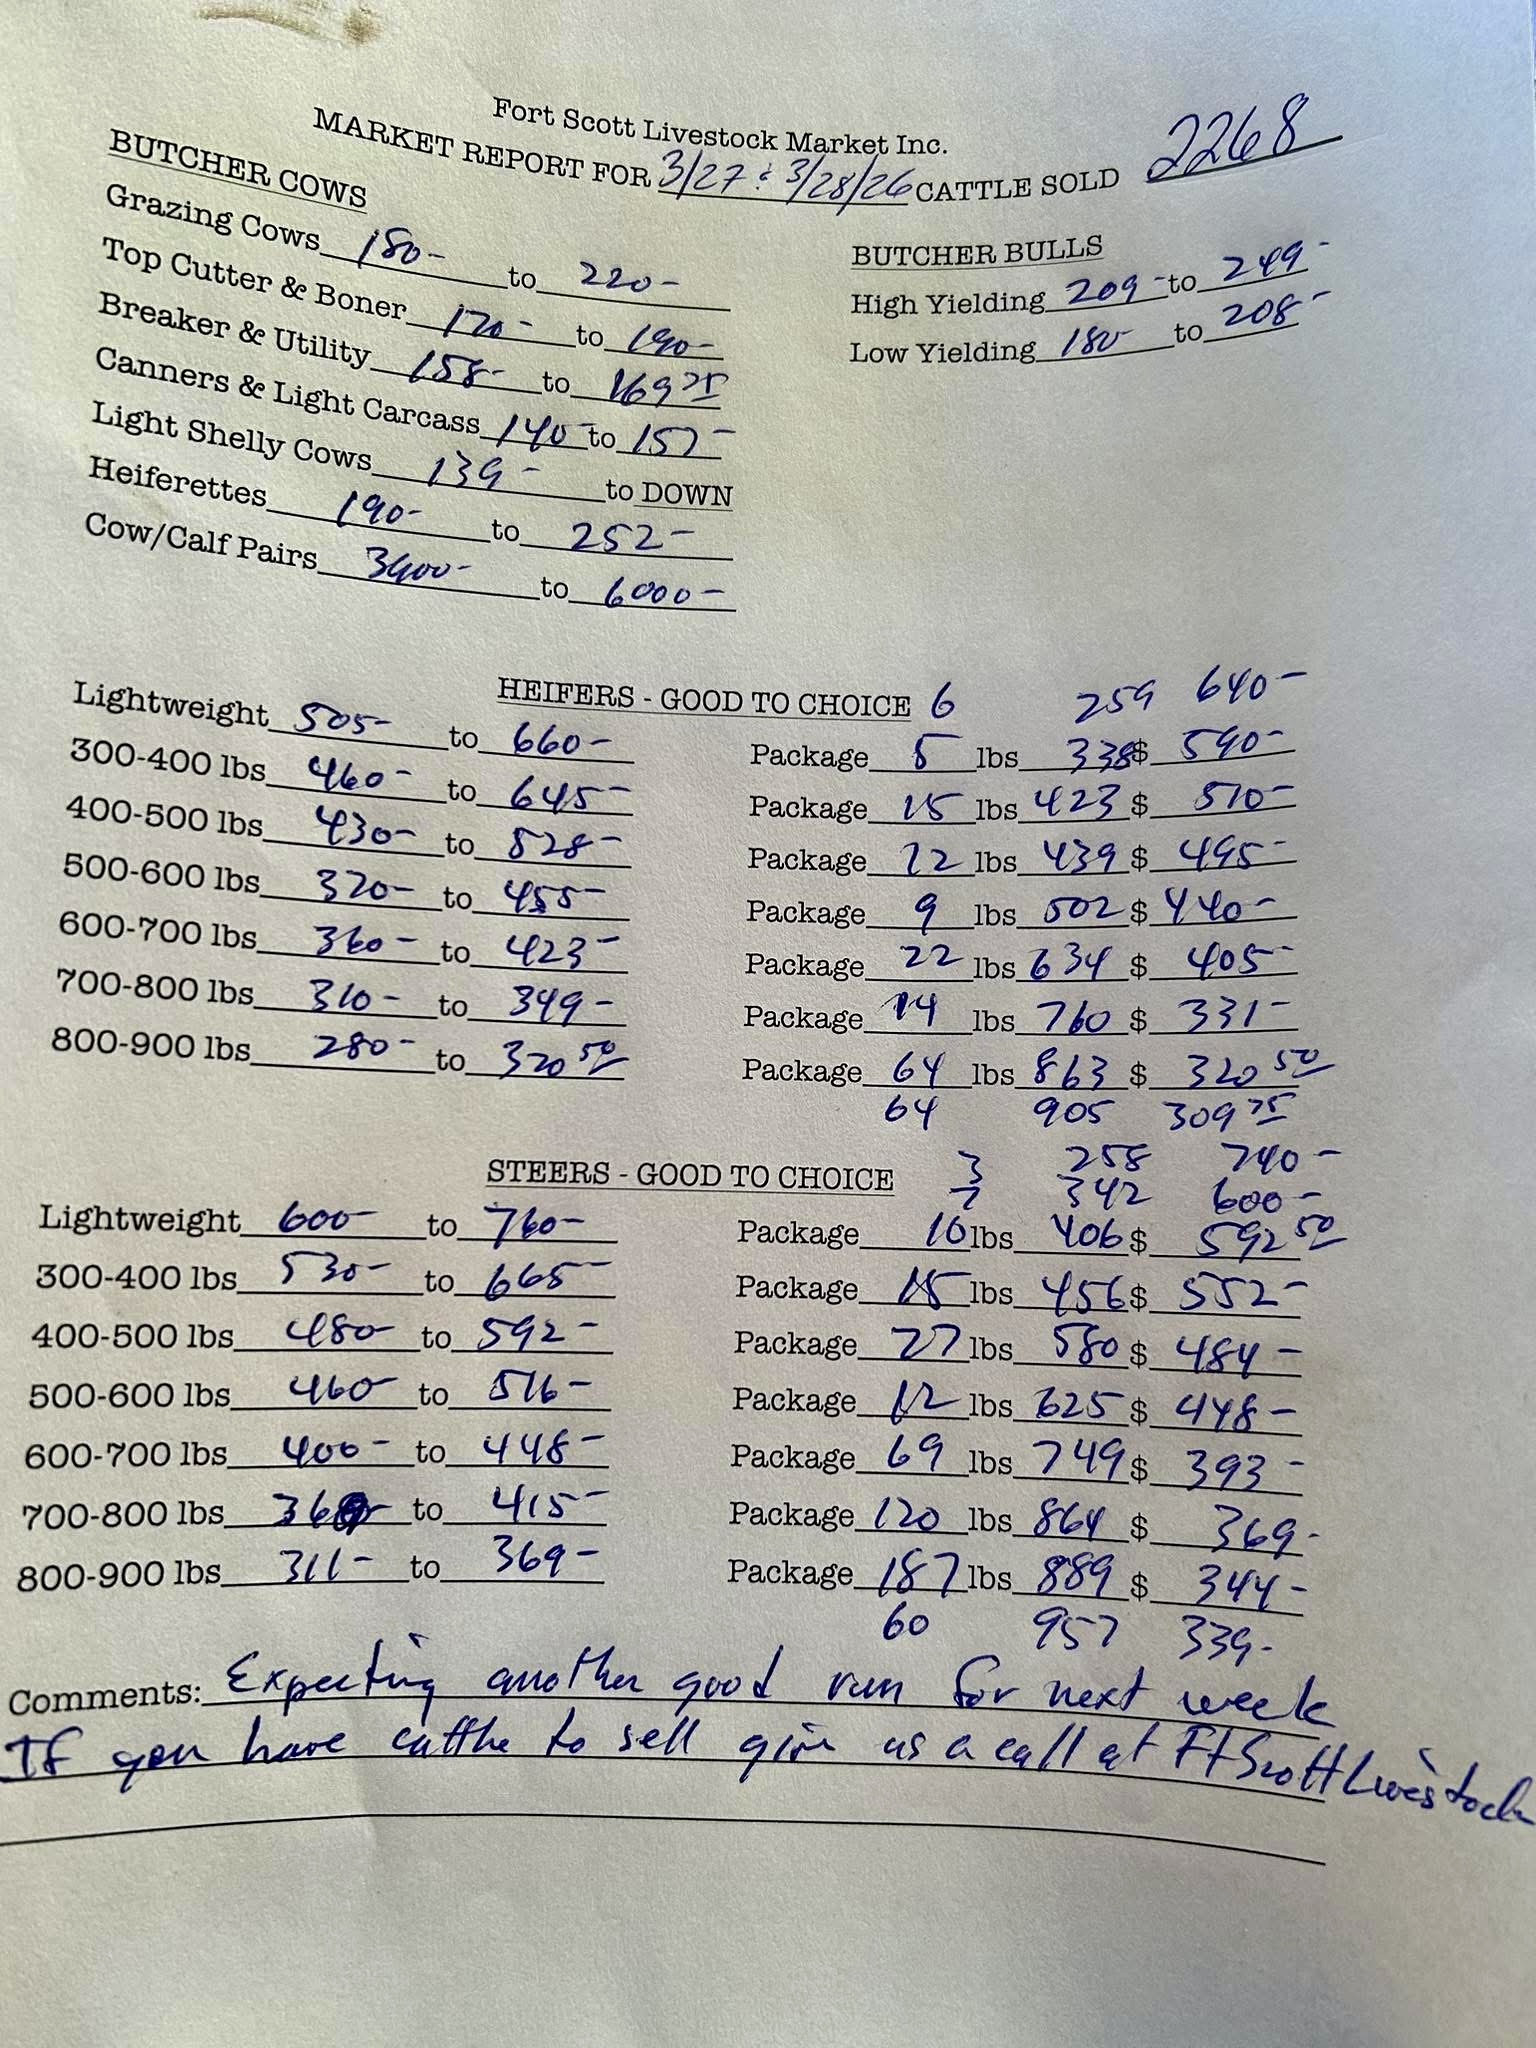 Fort Scott Livestock Market Inc.
MARKET REPORT FOR 3/27 & 3/28/26 CATTLE SOLD 2268
BUTCHER COWS
Grazing Cows 180- to 220-
Top Cutter & Boner 170- to 190-
Breaker & Utility 158- to 169 75
Canners & Light Carcass 140- to 157-
Light Shelly Cows 139- to DOWN
Heiferettes 190- to 252-
Cow/Calf Pairs 3400- to 6000-
BUTCHER BULLS
High Yielding 209- to 249-
Low Yielding 180- to 208-
HEIFERS - GOOD TO CHOICE 6 259 640-
Lightweight 505- to 660-
300-400 lbs 460- to 645-
400-500 lbs 430- to 528-
500-600 lbs 370- to 455-
600-700 lbs 360- to 423-
700-800 lbs 310- to 349-
800-900 lbs 280- to 320 50
Package 5 lbs 338 $ 590-
Package 15 lbs 423 $ 510-
Package 12 lbs 439 $ 495-
Package 9 lbs 502 $ 440-
Package 22 lbs 634 $ 405-
Package 14 lbs 760 $ 331-
Package 64 lbs 863 $ 320 50
64 905 309 75
STEERS - GOOD TO CHOICE 3 258 740-
7 342 600-
Lightweight 600- to 760-
300-400 lbs 530- to 665-
400-500 lbs 480- to 592-
500-600 lbs 460- to 516-
600-700 lbs 400- to 448-
700-800 lbs to 415-
800-900 lbs 311- to 369-
Package 10 lbs 406 $ 592 50
Package 15 lbs 456 $ 552-
Package 27 lbs 580 $ 484-
Package 12 lbs 625 $ 448-
Package 69 lbs 749 $ 393-
Package 120 lbs 864 $ 369-
Package 187 lbs 889 $ 344-
60 957 339-
Comments: Expecting another good run for next week
If you have cattle to sell give us a call at Ft Scott Livestock